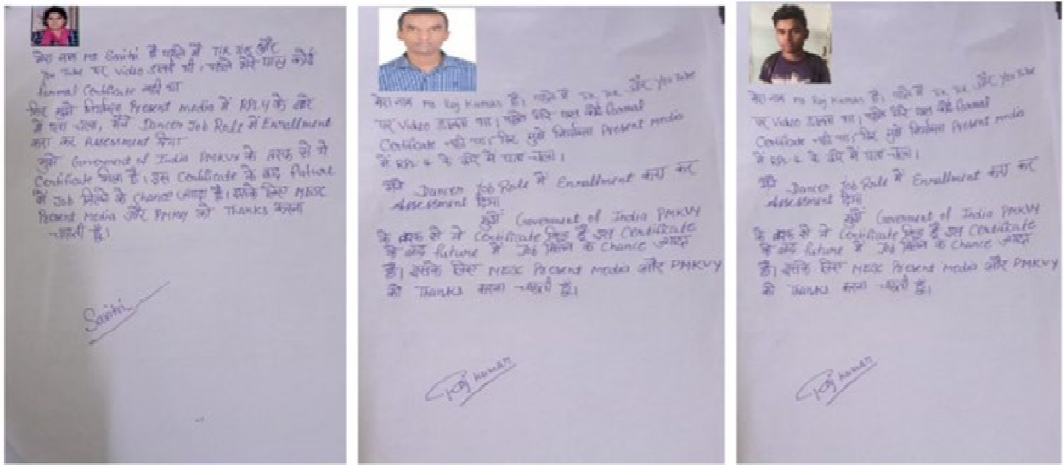 मेरा नाम Ms Savitri है पहले मैं Tik Tok और
You Tube पर Video डालती थी, पहले मेरे पास कोई
Formal Certificate नही था
फिर मुझे Present Media में RPL-4 के बारे
में पता चला, मैंने Dancer Job Role में Enrallment
करा कर Assessment दिया
मुझे Government of India PMKVY के तरफ से ये
Certificate मिला है। इस Certificate के बाद Future
में Job मिलने के Chance ज्यादा है। इसके लिए MESC
Present Media और PMKVY को THANKS करना
चाहती हूँ।
Savitri
मेरा नाम Mr Raj Kumar है। पहले मैं Tik Tok और YouTube
पर Video डालता था। पहले मेरे पास कोई Formal
Certificate नही था। फिर मुझे Present Media
में RPL-4 के बारे में पता चला।
मैंने Dancer Job Role में Enrallment करा कर
Assessment दिया
मुझे Government of India PMKVY
के तरफ से ये Certificate मिला है इस Certificate
के बाद Future में Job मिलने के Chance ज्यादा
है। इसके लिए MESC Present Media और PMKVY
को Thanks करना चाहती हूँ।
Raj Kumar
मेरा नाम Mr Raj Kumar है, पहले मैं Tik Tok और YouTube
पर Video डालता था। पहले मेरे पास कोई Formal
Certificate नही था। फिर मुझे Present Media
में RPL-4 के बारे में पता चला।
मैंने Dancer Job Role में Enrallment करा कर
Assessment दिया
मुझे Government of India PMKVY
के तरफ से ये Certificate मिला है इस Certificate
के बाद Future में Job मिलने के Chance ज्यादा
है। इसके लिए MESC Present Media और PMKVY
को Thanks करना चाहती हूँ।
Raj Kumar